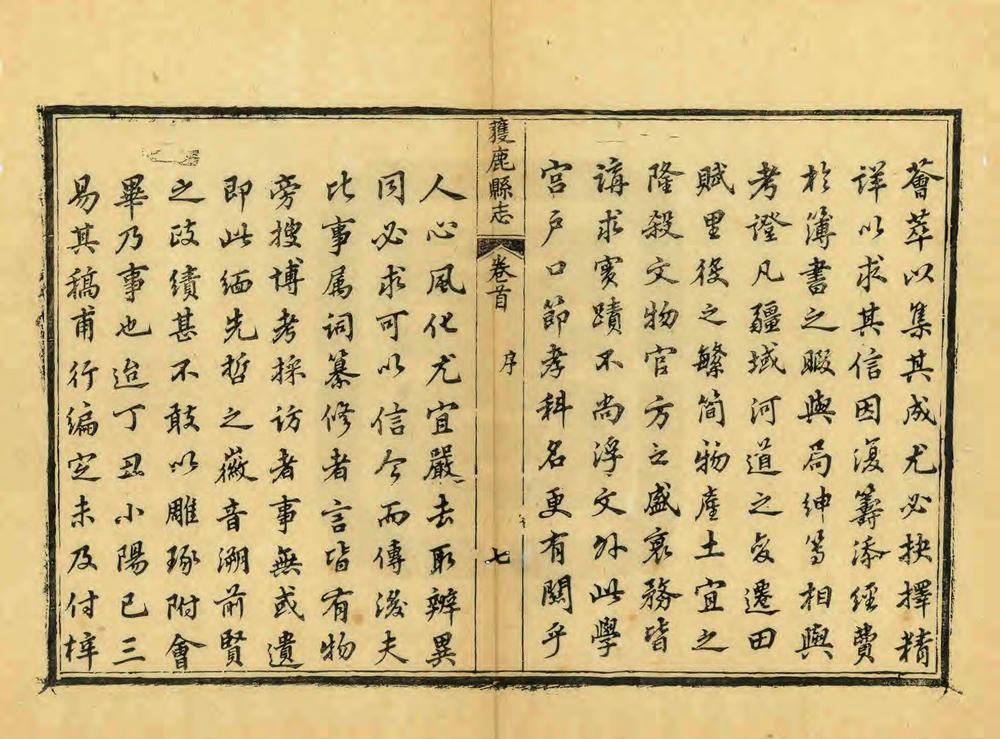 薈萃以集其成尤必抉擇精
詳以求其信因復籌添經費
於簿書之暇與局紳等相與
考證凡疆域河道之變遷田
賦里役之繁簡物產土宜之
隆殺文物官方之盛衰務皆
講求實蹟不尚浮文外此學
宮戶口節孝科名更有關乎
獲鹿縣志
卷首
序
七
人心風化尤宜嚴去取辨異
同必求可以信今而傳後夫
比事属詞纂修者言皆有物
旁搜博考採訪者事無或遺
即此緬先哲之徽音溯前賢
之政績甚不敢以雕琢附會
畢乃事也迨丁丑小陽已三
易其稿甫行編定未及付梓